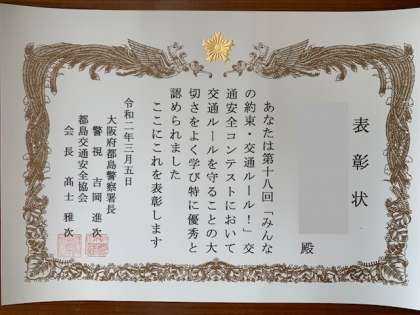 表彰状
殿
あなたは第十八回「みんな
の約束・交通ルール!」交
通安全コンテストにおいて
交通ルールを守ることの大
切さをよく学び特に優秀と
認められました
ここにこれを表彰します
令和二年三月五日
大阪府都島警察署長
警視 吉岡進次
都島交通安全協会
会長 髙士雅次